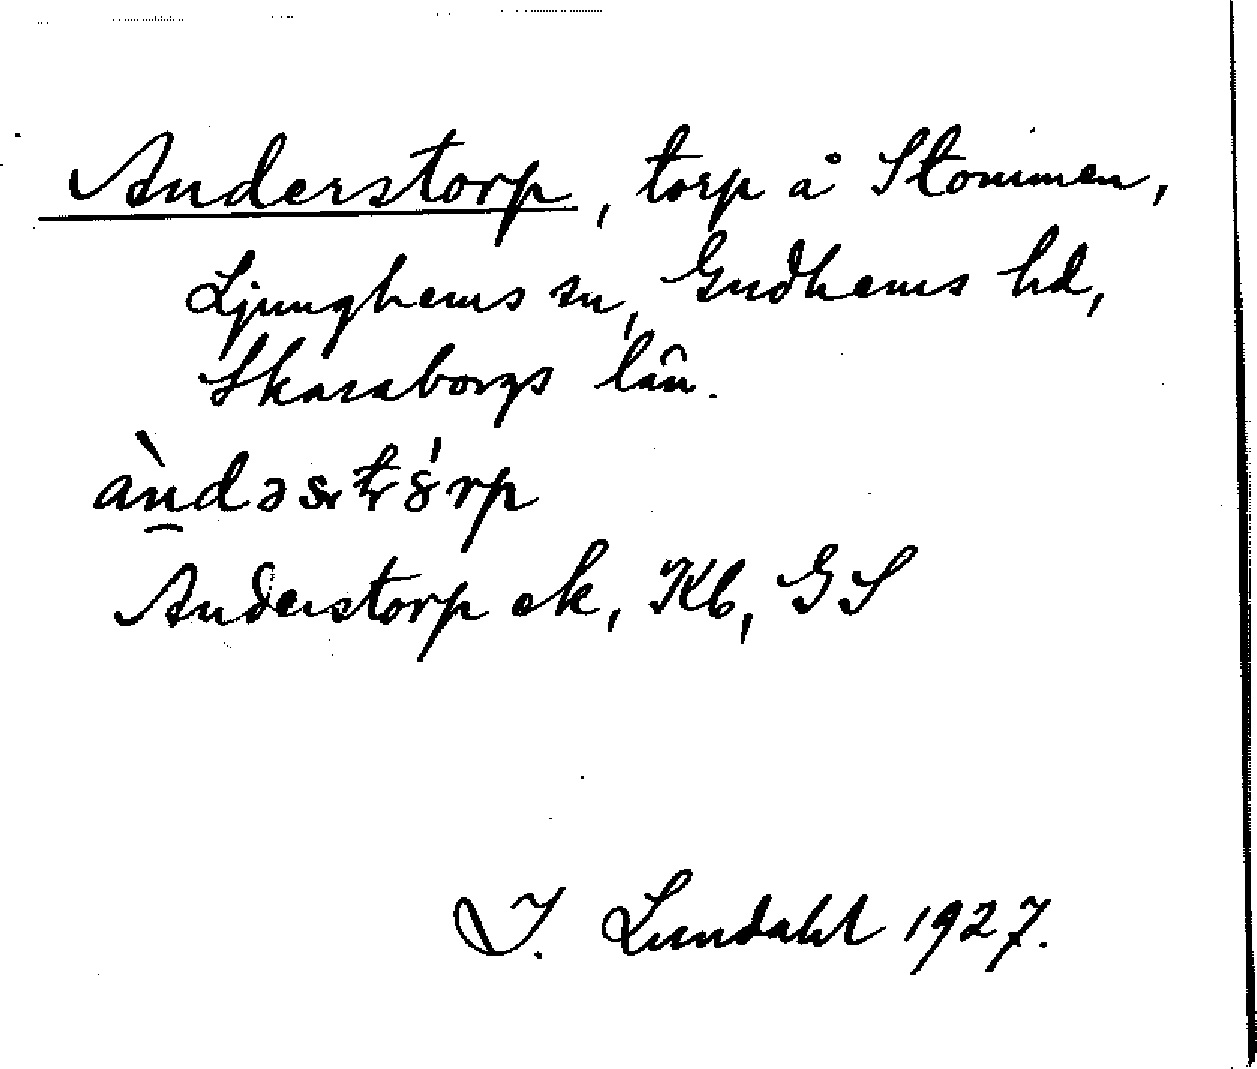 Anderstorp, torp å Stommen,
Ljunghems sn, Gudhems hd,
Skaraborgs län.
Anderstorp ek, Kb, GS
I. Lundahl 1927.